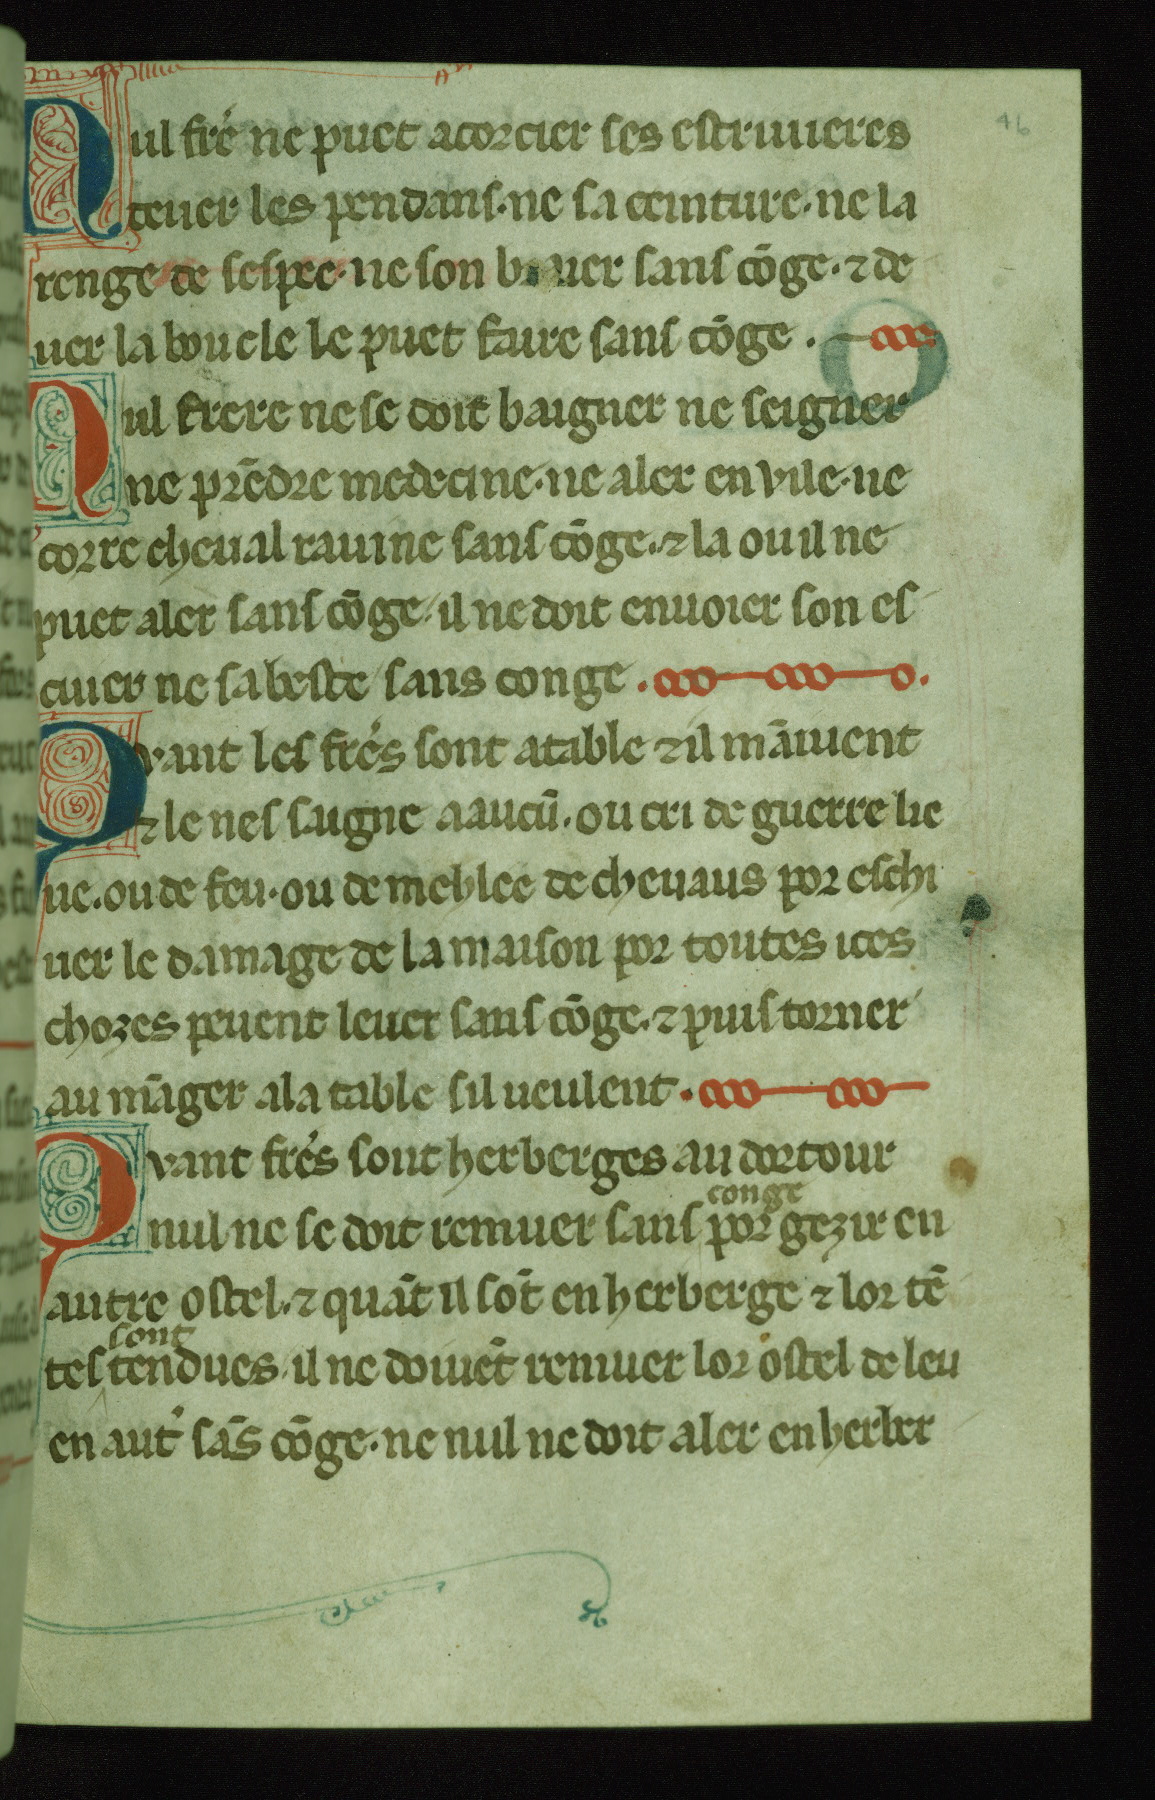 46
Nul fr̃e ne puet acorcier ses estriuieres
teuer les pendans. ne sa ceinture. ne la
renge de sespee. ne son sans cõge. ⁊ de
uer la boucle le puet faire sans cõge.
Nul frere ne se doit baigner ne seigner
ne prẽdre medecine. ne aler en vile. ne
corre cheual rauine sans cõge. ⁊ la ou il ne
puet aler sans cõge. il ne doit enuoier son es
cuier ne sa beste sans conge.
Quant les fr̃es sont a table ⁊ il mãiuent
⁊ le nes saigne a aucũ. ou cri de guerre lie
ue. ou de feu. ou de mehlee de cheuaus por eschi
uer le damage de la maison por toutes ices
chozes peuent leuer sans cõge. ⁊ puis torner
au mãger a la table sil ueulent.
Quant fr̃es sont herberges au dortour
conge
nul ne se doit remuer sans por gezir en
autre ostel. ⁊ quãt il sõt en herberge ⁊ lor tẽ
sont
tes tendues. il ne doiuẽt remuer lor ostel de leu
en aut̾ sãs cõge. ne nul ne doit aler en herber